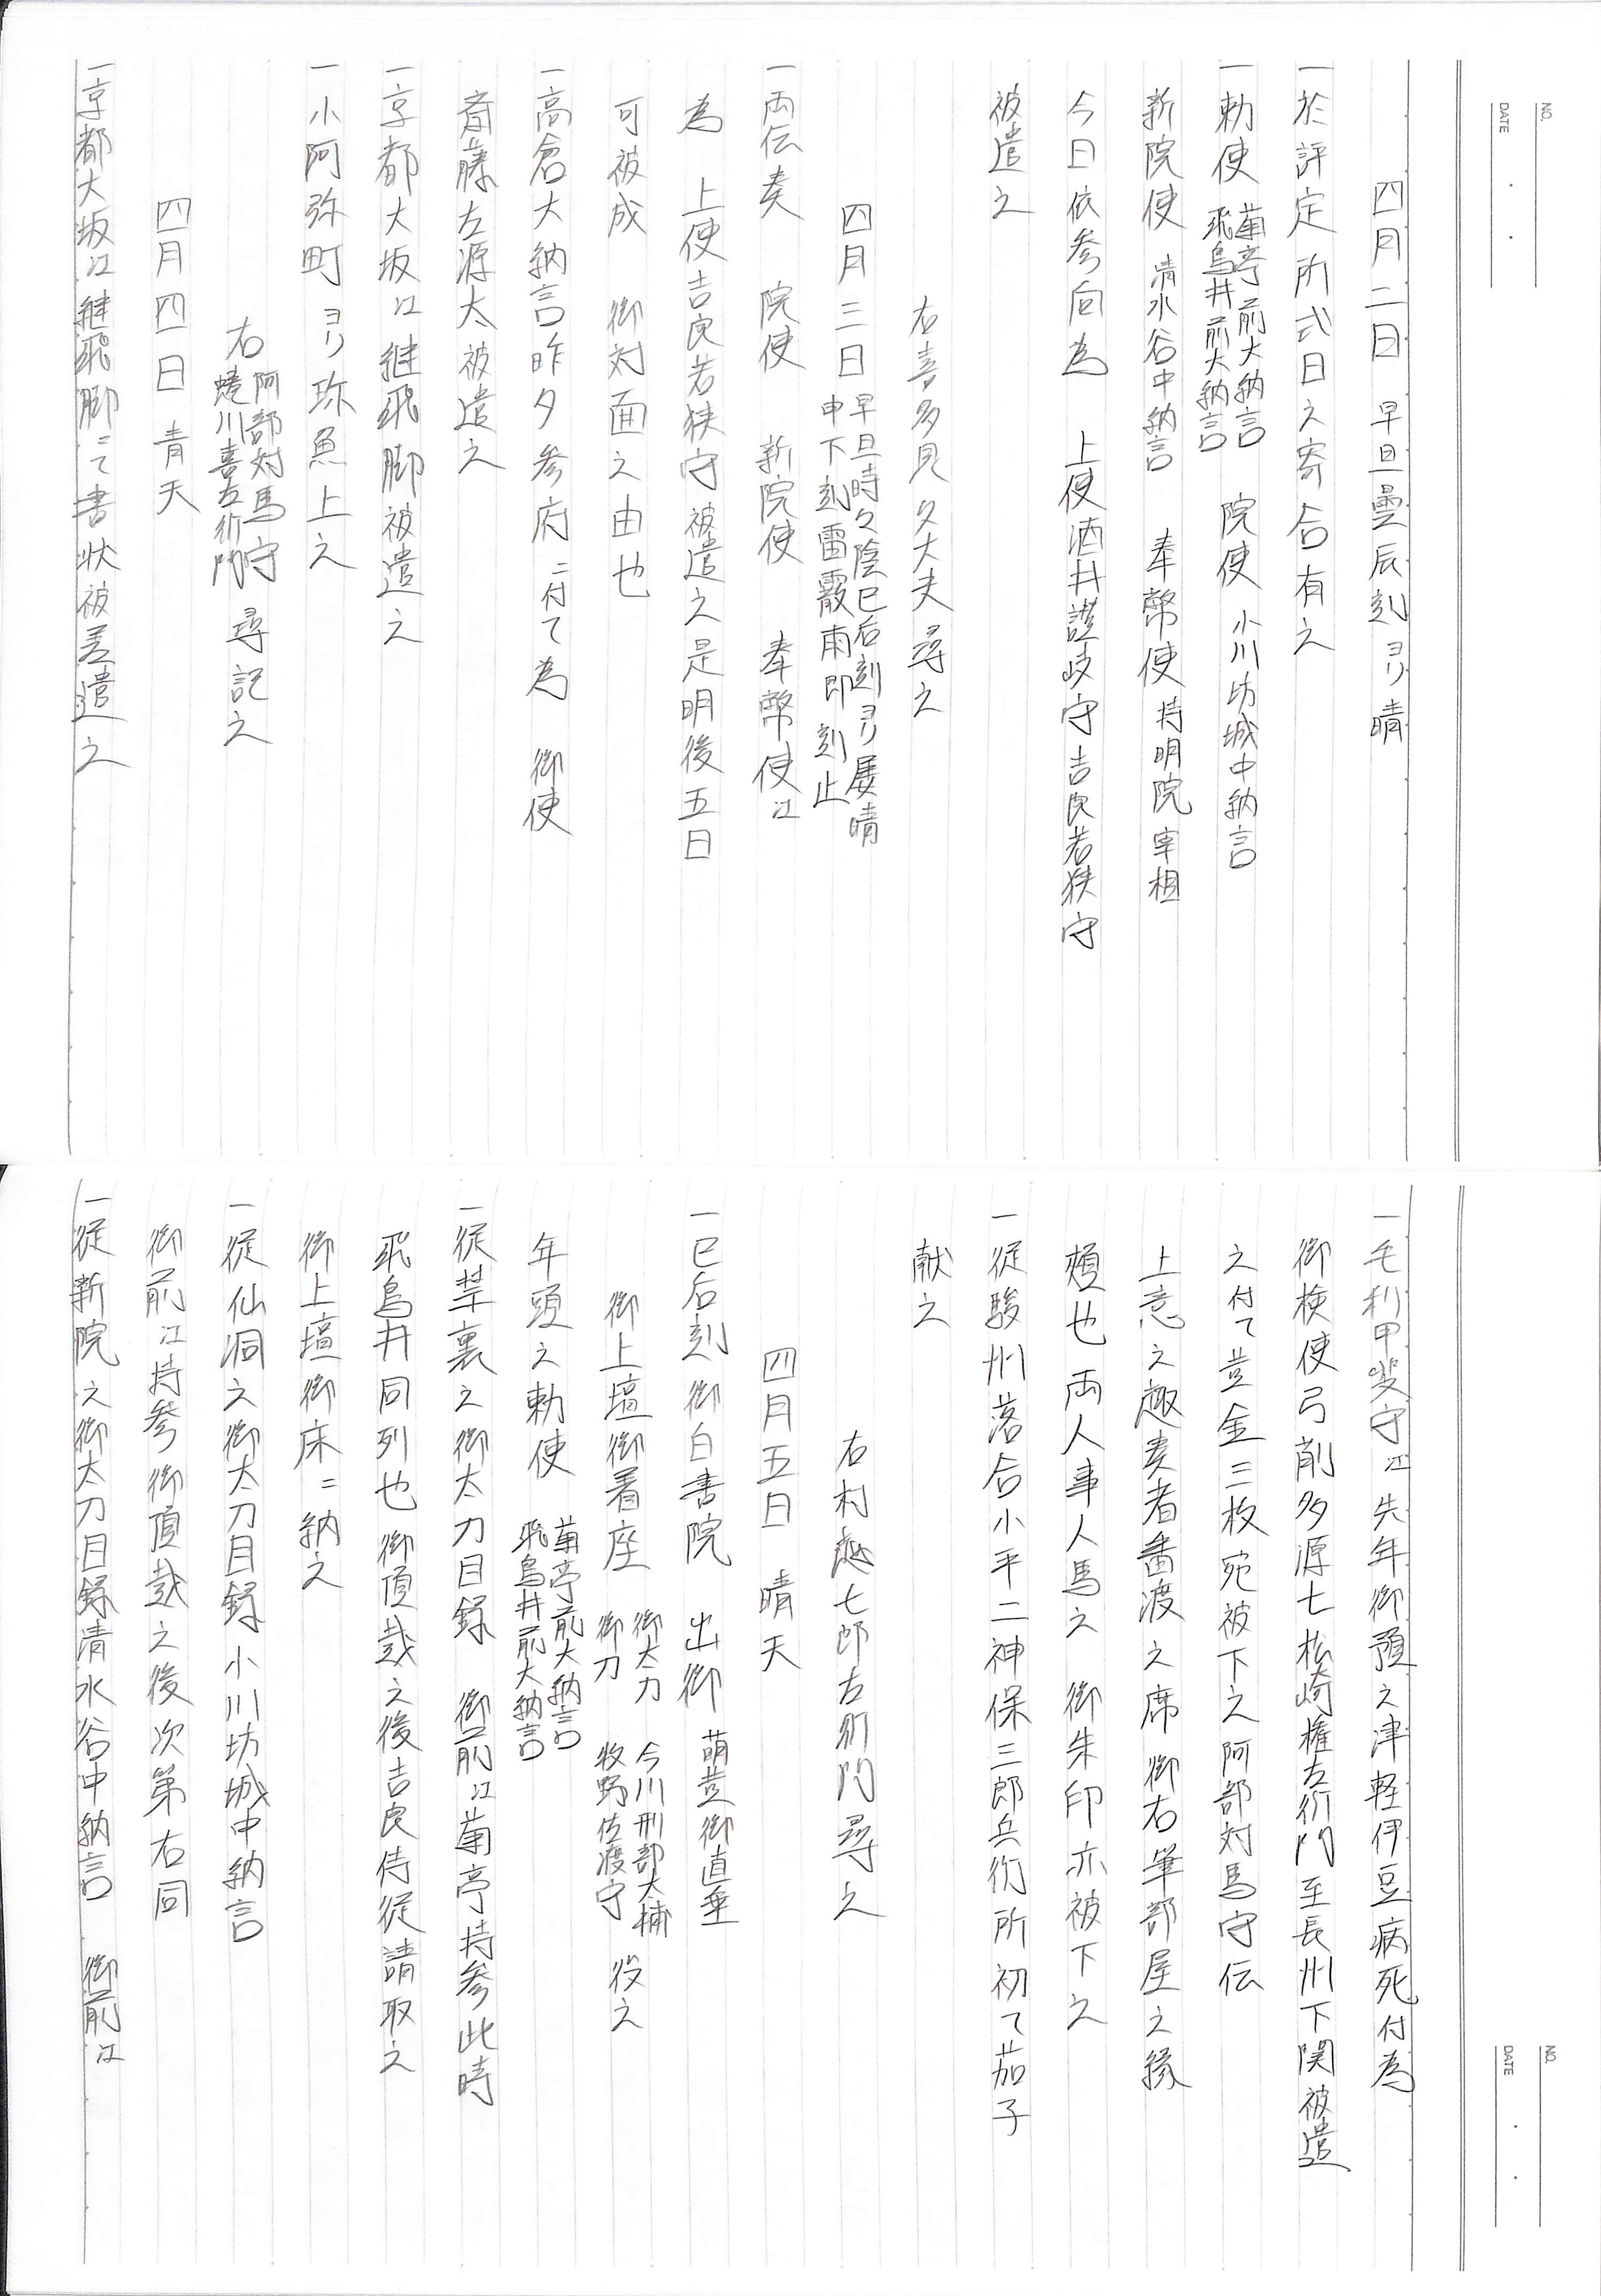 NO.
DATE
四月二日 早旦曇辰刻ヨリ晴
一於評定所式日之寄合有之
一勅使 菊亭前大納言 飛鳥井前大納言 院使 小川坊城中納言
新院使 清水谷中納言 奉幣使 持明院宰相
今日依参向為 上使酒井讃岐守吉良若狭守
被遣之
右喜多見久大夫尋之
四月三日 早旦時々陰巳后刻ヨリ屡晴 申下刻雷霰雨即刻止
一両伝奏 院使 新院使 奉幣使江
為 上使吉良若狭守被遣之是明後五日
可被成 御対面之由也
一高倉大納言昨夕参府ニ付て為 御使
斎藤左源太被遣之
一京都大坂江継飛脚被遣之
一小阿弥町ヨリ珎魚上之
右 阿部対馬守 蜷川喜左衛門 尋記之
四月四日 青天
一京都大坂江継飛脚ニて書状被差遣之
NO.
DATE
一毛利甲斐守江先年御預之津軽伊豆病死付為
御検使弓削多源七松崎権左衛門至長州下関被遣
之付て黄金三枚宛被下之阿部対馬守伝
上意之趣奏者番渡之席御右筆部屋之縁
頬也両人事人馬之 御朱印亦被下之
一従駿州落合小平二神保三郎兵衛所初て茄子
献之
右村越七郎左衛門尋之
四月五日 晴天
一巳后刻御白書院 出御 萌黄御直垂
御上壇御着座 御太刀 今川刑部大輔 御刀 牧野佐渡守 役之
年頭之勅使 菊亭前大納言 飛鳥井前大納言
一従禁裏之御太刀目録 御前江菊亭持参此時
飛鳥井同列也御頂戴之後吉良侍従請取之
御上壇御床ニ納之
一従仙洞之御太刀目録小川坊城中納言
御前江持参御頂戴之後次第右同
一従新院之御太刀目録清水谷中納言 御前江